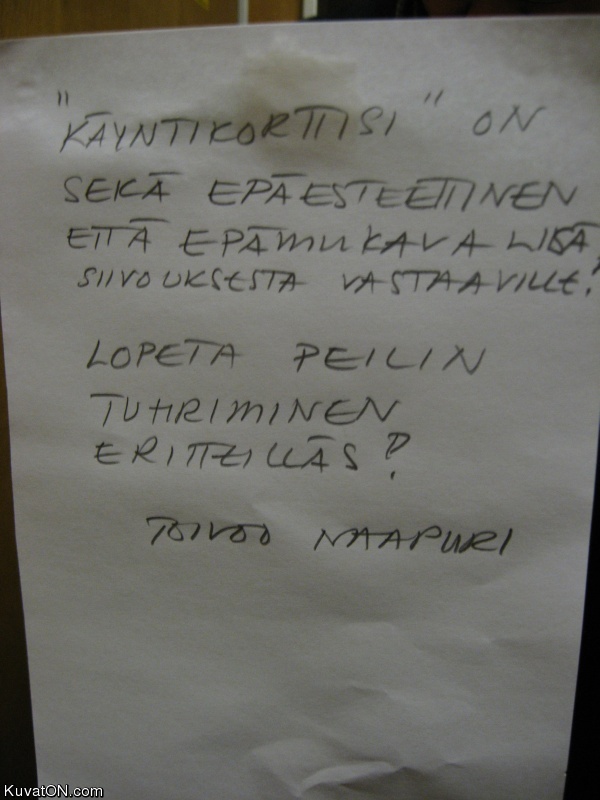 "KÄYNTIKORTTISI" ON
SEKÄ EPÄESTEETTINEN
ETTÄ EPÄMUKAVA LISÄ
SIIVOUKSESTA VASTAAVILLE!
LOPETA PEILIN
TUHRIMINEN
ERITTEILLÄS!
TOIVOO NAAPURI
KuvatON.com